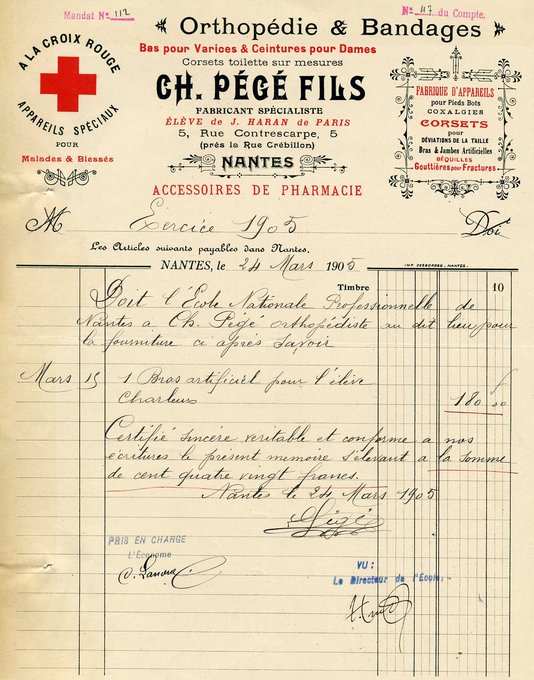 Mandat N° 112
N° 47 du Compte.
Orthopédie & Bandages
Bas pour Varices & Ceintures pour Dames
Corsets toilette sur mesures
CH. PÉGÉ FILS
FABRICANT SPÉCIALISTE
ÉLÈVE de J. HARAN de PARIS
5, Rue Contrescarpe, 5
(près la Rue Crébillon)
NANTES
ACCESSOIRES DE PHARMACIE
A LA CROIX ROUGE
APPAREILS SPÉCIAUX
POUR
Malades & Blessés
FABRIQUE D'APPAREILS
pour Pieds Bots
COXALGIES
CORSETS
pour
DÉVIATIONS DE LA TAILLE
Bras & Jambes Artificielles
BÉQUILLES
Gouttières pour Fractures
M Exercice 1905 Doit
Les Articles suivants payables dans Nantes.
NANTES, le 24 Mars 1905
IMP. DESBORDES, NANTES.
Timbre 10
Doit l'École Nationale Professionnelle de
Nantes a Ch. Pégé orthopédiste au dit lieu pour
la fourniture ci après savoir
Mars 15 1 Bras artificiel pour l'élève
Charleux 180 f 00
Certifié sincère veritable et conforme a nos
écritures le present memoire s'élevant a la somme
de cent quatre vingt francs.
Nantes le 24 Mars 1905
Pégé
PRIS EN CHARGE
L'Économe
VU :
Le Directeur de l'École,